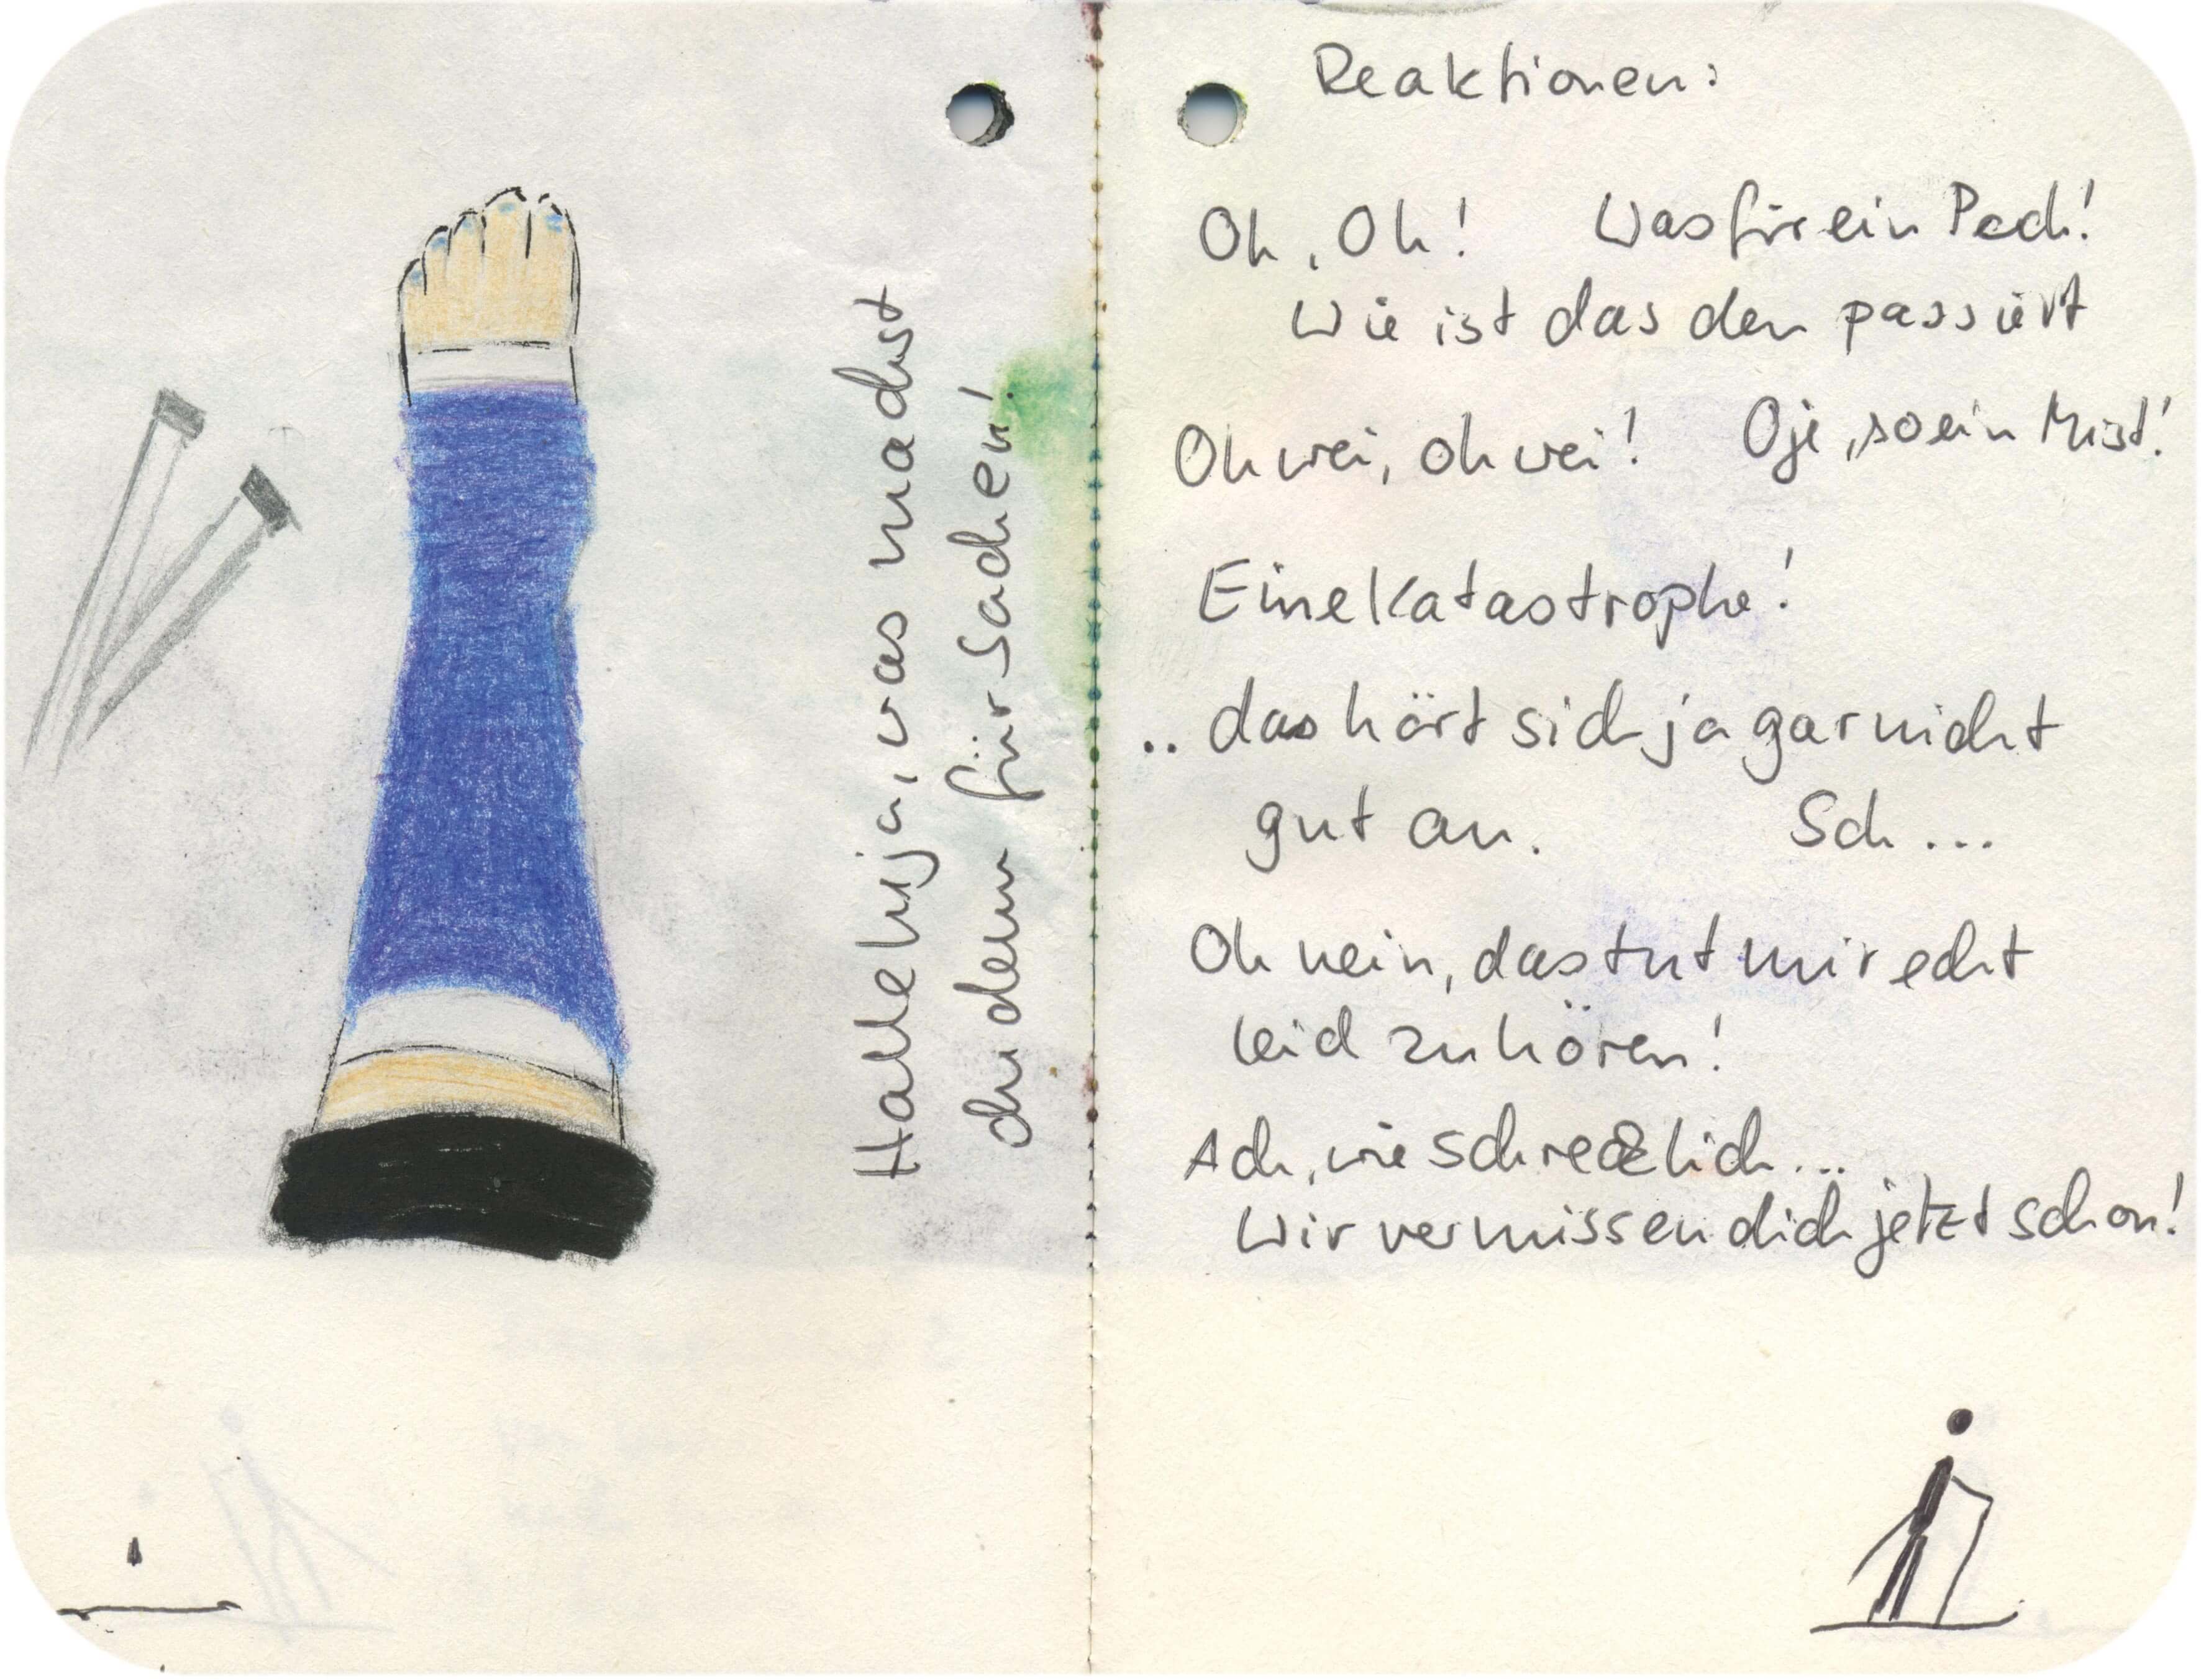 Hallehuja, was machst
du denn für Sachen!
Reaktionen:
Oh, Oh! Was für ein Pech!
Wie ist das den passiert
Oh wei, oh wei! Oje, so ein Mist!
Eine Katastrophe!
.. das hört sich ja gar nicht
gut an. Sch...
Oh nein, das tut mir echt
leid zu hören!
Ach, wie schrecklich...
Wir vermissen dich jetzt schon!